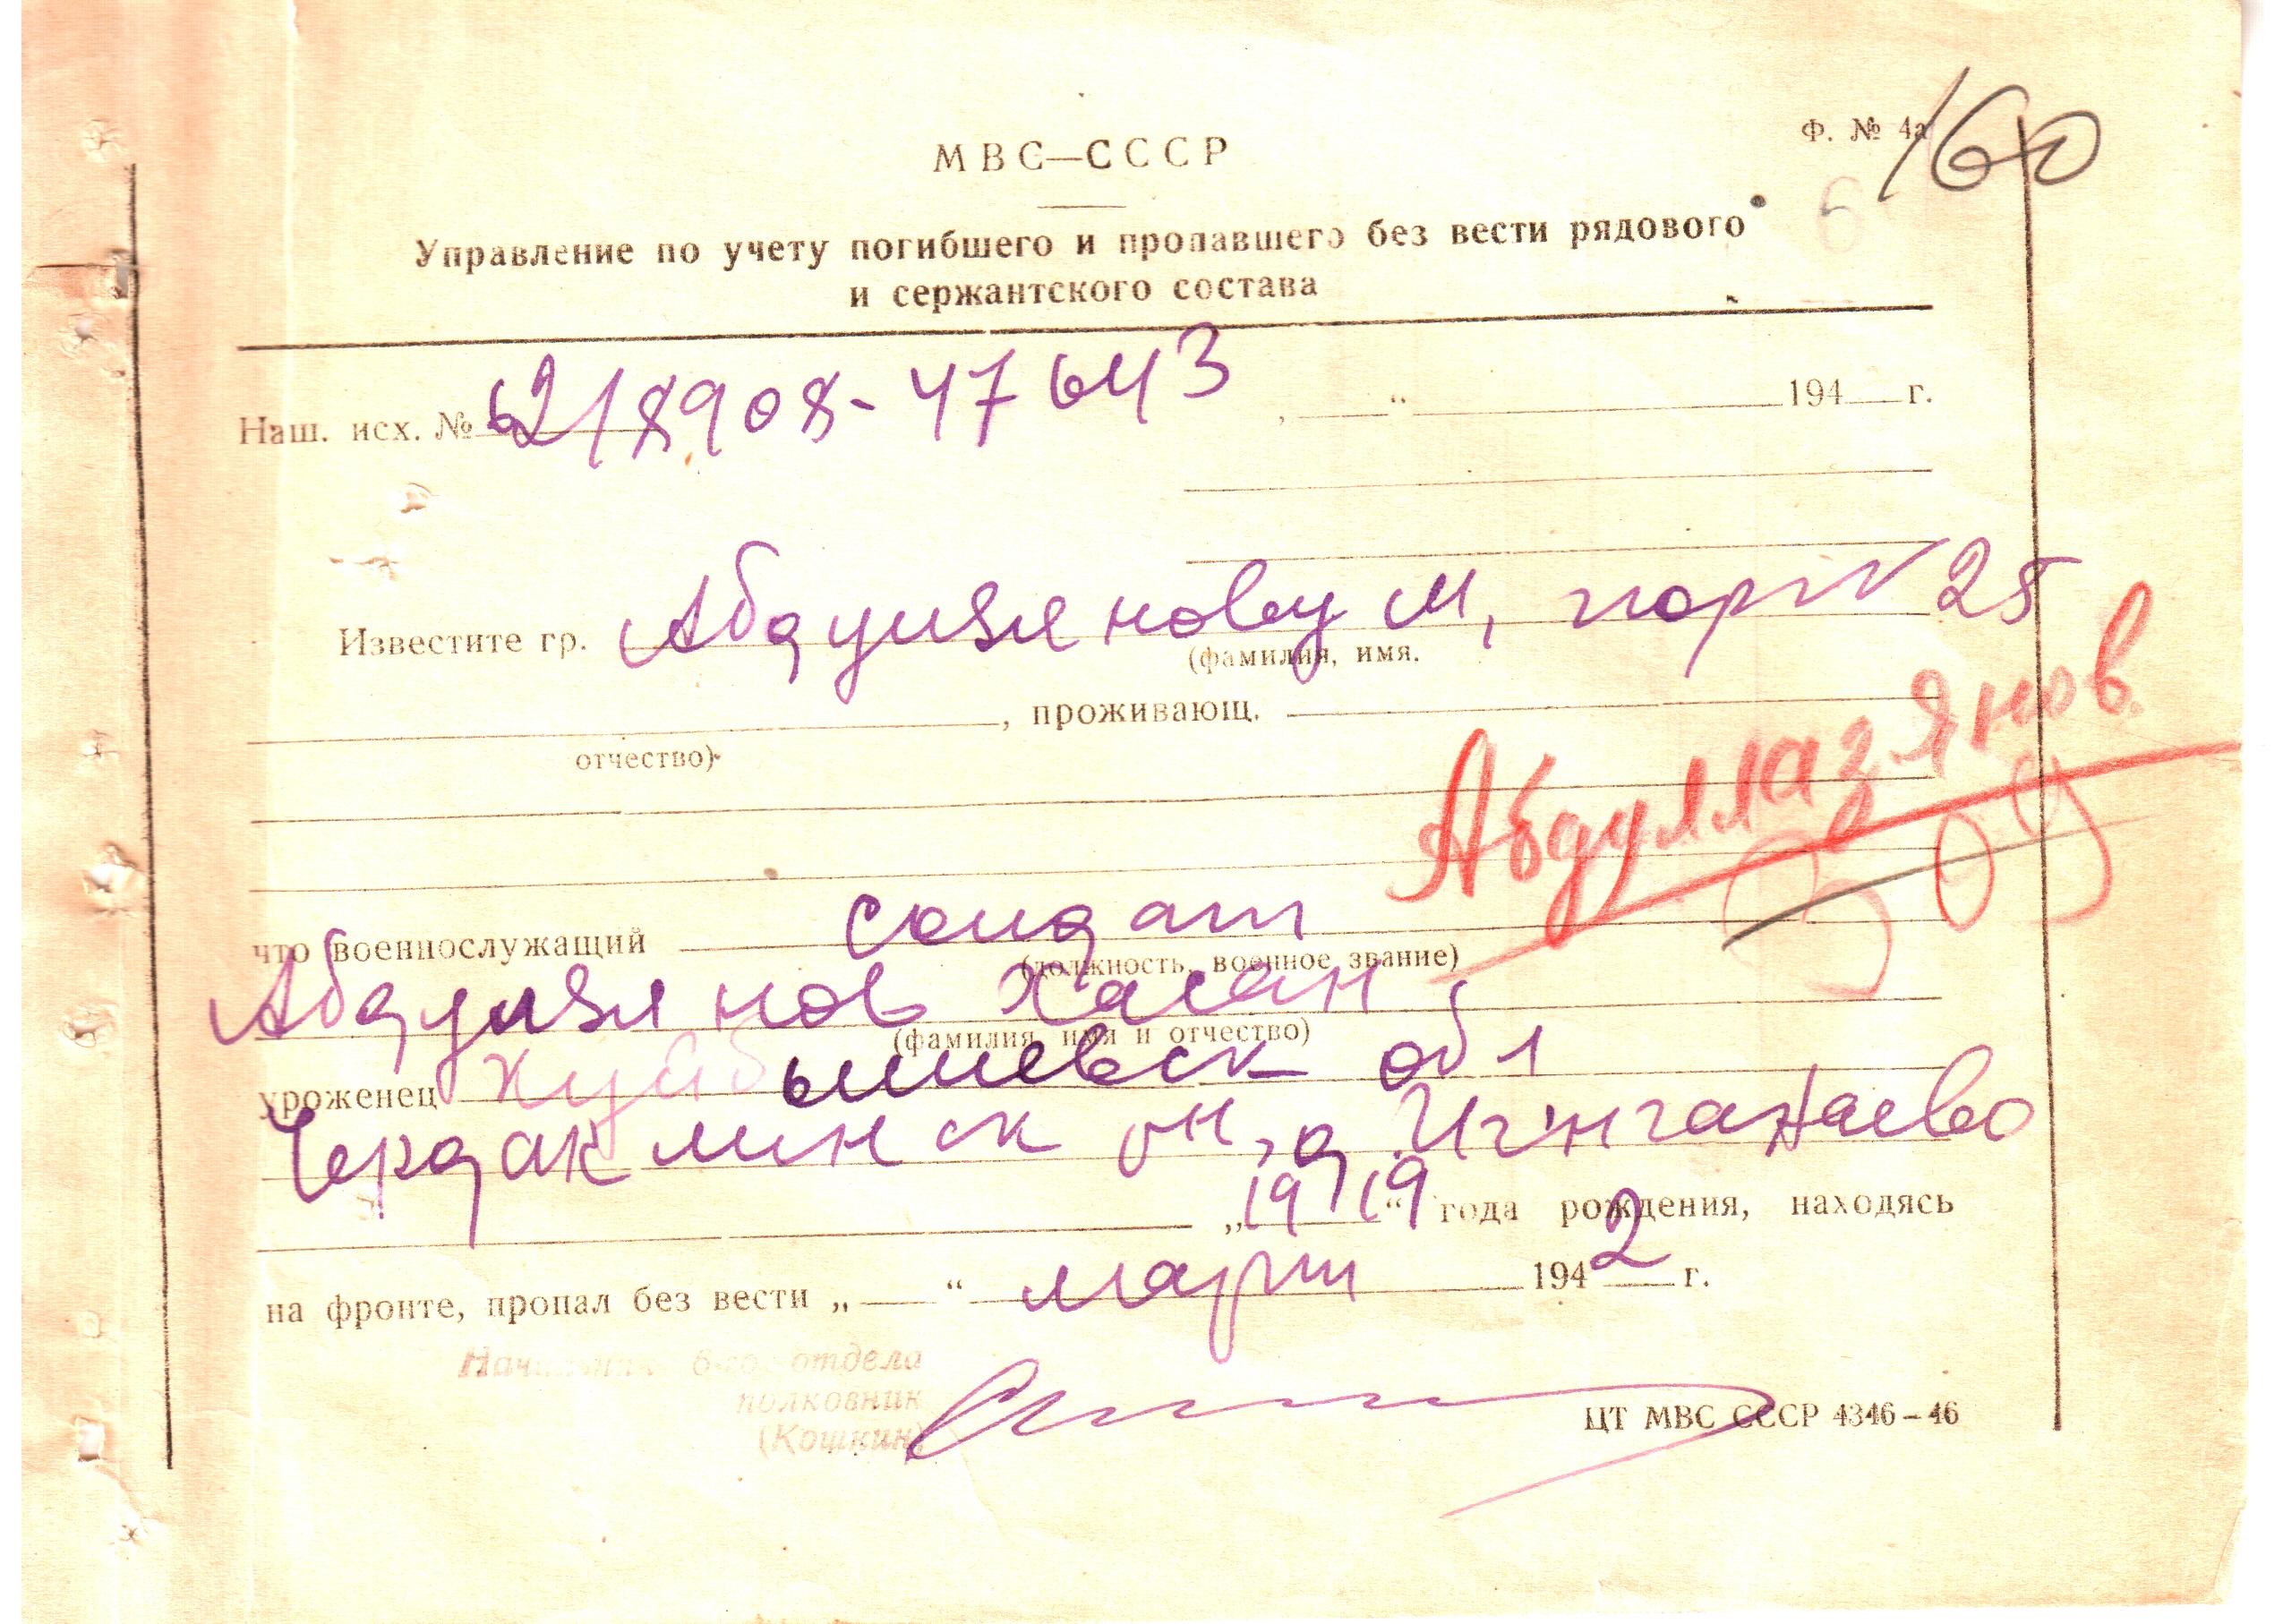 Ф. № 4а
160
МВС—СССР
Управление по учету погибшего и пропавшего без вести рядового
и сержантского состава
Наш. исх. № 6218908-47643 , „ “ 194 г.
Известите гр. Абдулзяянову М, 25
(фамилия, имя.
, проживающ.
отчество)
Абдуллазянов
что военнослужащий солдат
(должность, военное звание)
Абдулзяянов Хасан
(фамилия, имя и отчество)
уроженец Куйбышевск обл
Чердаклинск рн, д
„1919“ года рождения, находясь
на фронте, пропал без вести „ “ март 1942 г.
Начальник 6-го отдела
полковник
(Кошкин)
ЦТ МВС СССР 4346-46